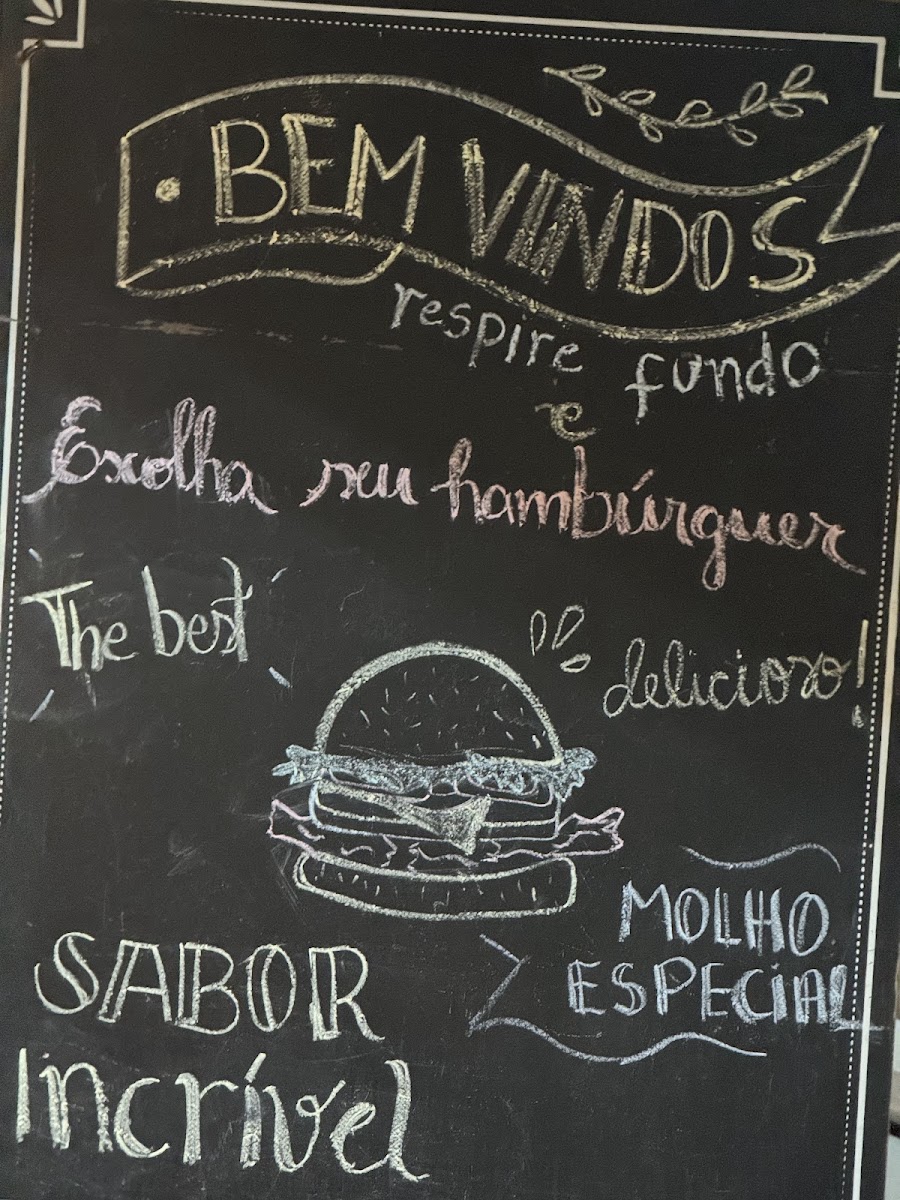 BEM VINDOS
respire fundo
e
Escolha seu hambúrguer
The best
delicioso!
MOLHO
ESPECIAL
SABOR
Incrível